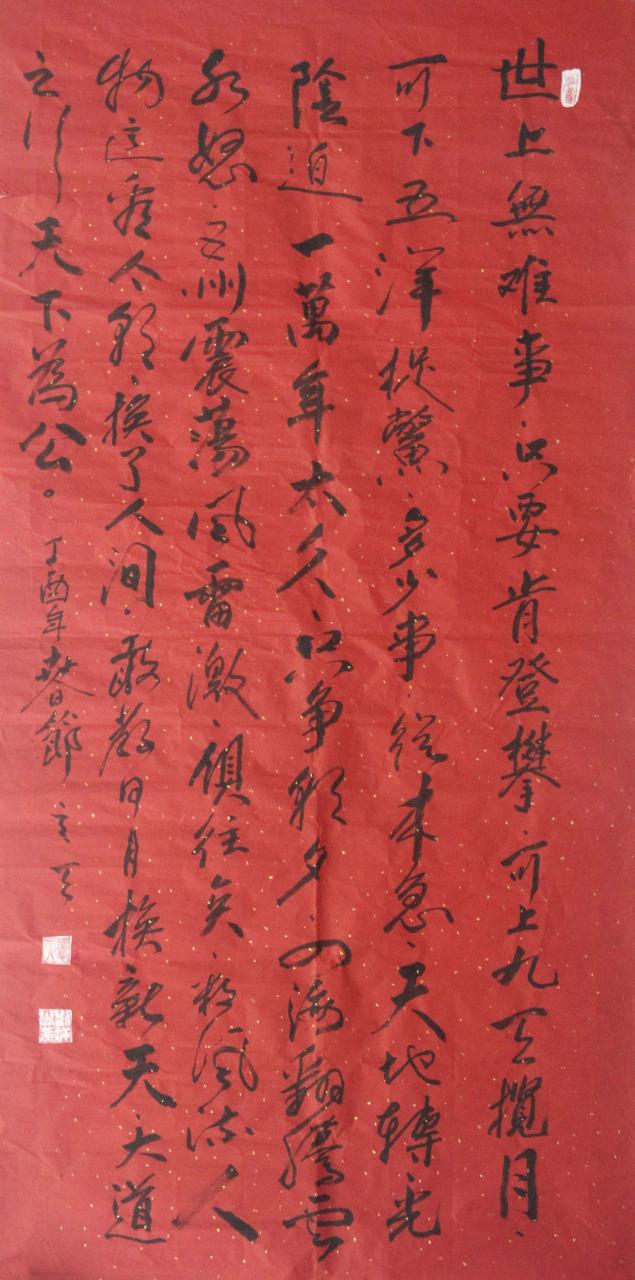 世上無难事，只要肯登攀，可上九天揽月，
可下五洋捉鱉，多少事，從来急，天地轉，光
陰迫，一萬年太久，只争朝夕，四海翻騰雲
水怒，五州震蕩風雷激，俱往矣，数風流人
物還看今朝，換了人间，敢教日月換新天，大道
之行，天下為公。
丁酉年春節